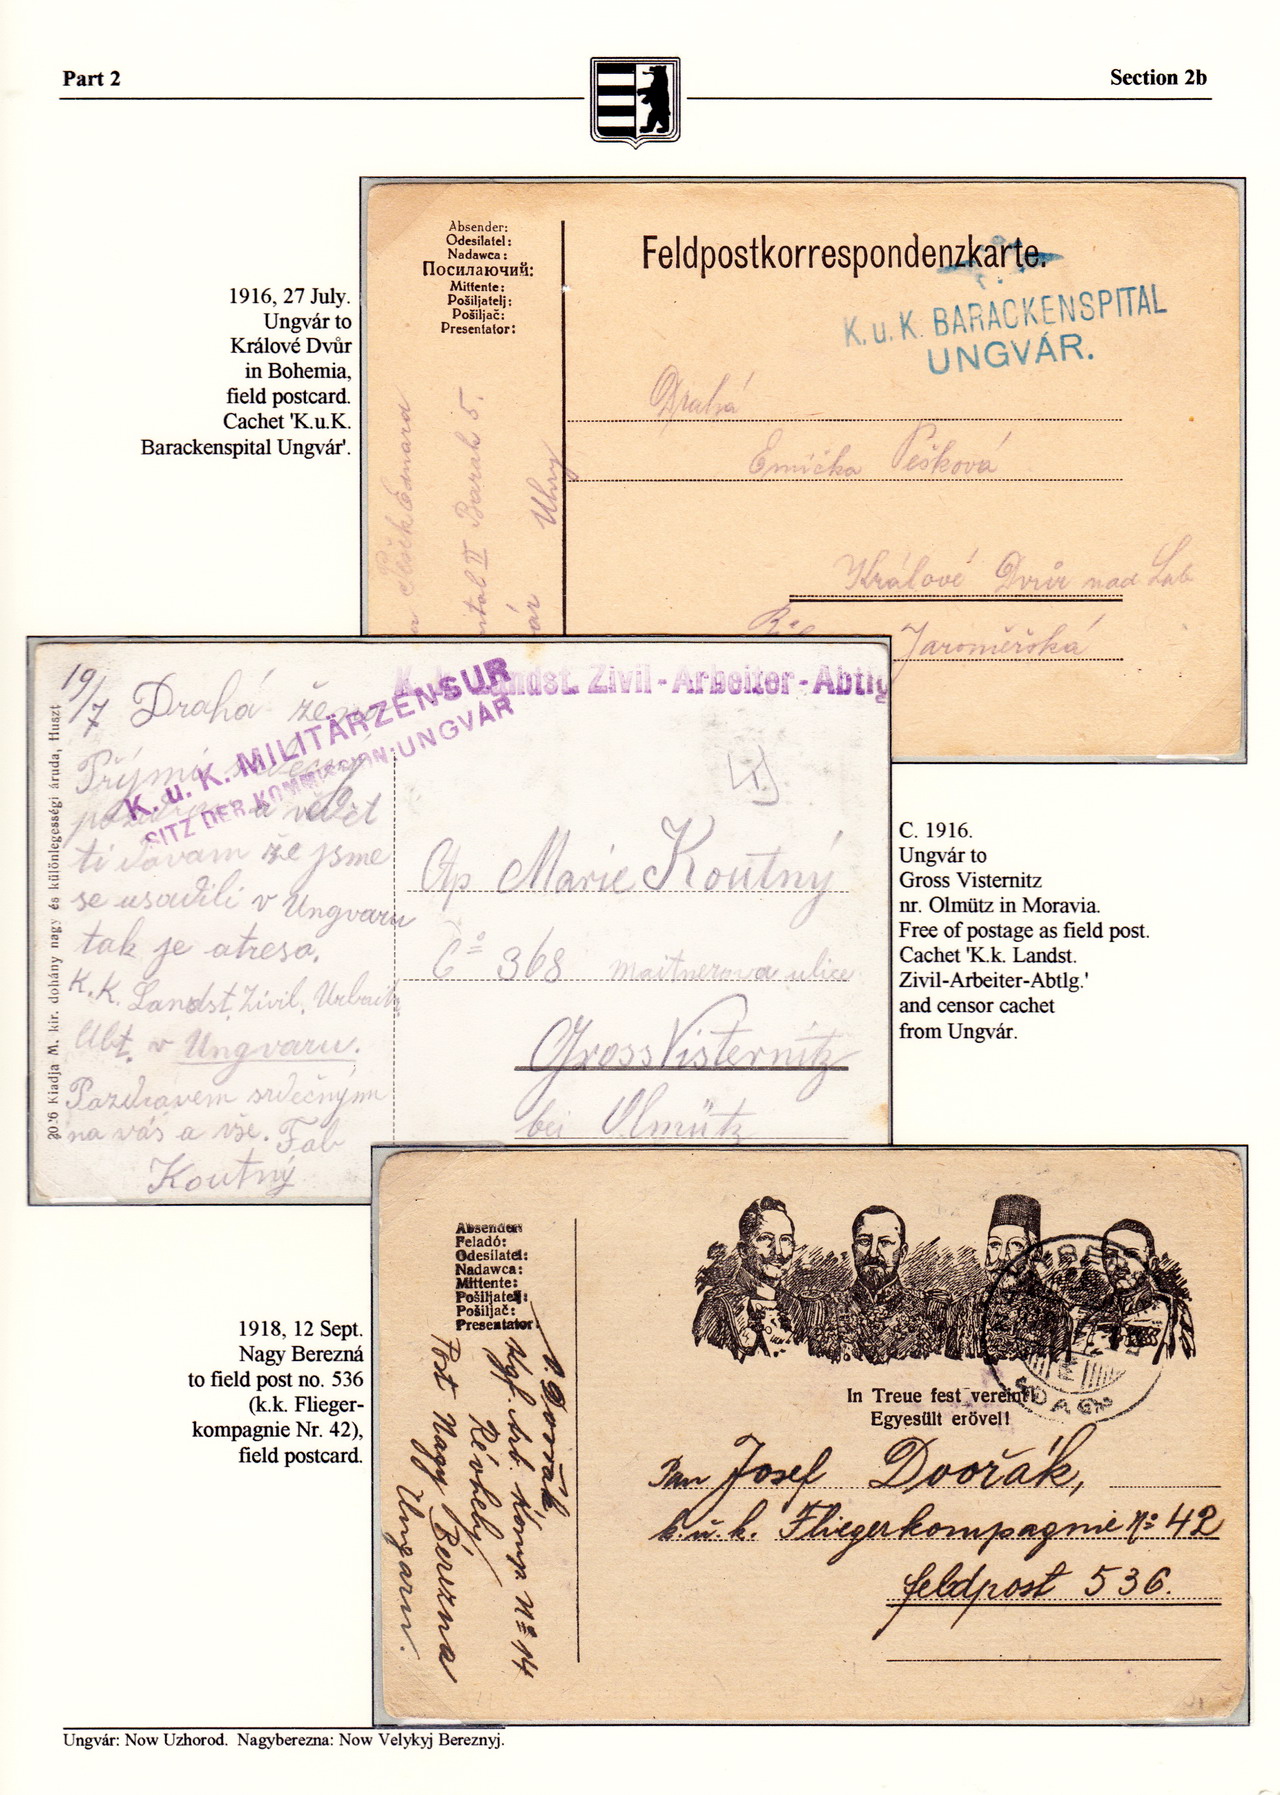 Part 2
Section 2b
1916, 27 July.
Ungvár to
Králové Dvůr
in Bohemia,
field postcard.
Cachet 'K.u.K.
Barackenspital Ungvár'.
Absender:
Odesílatel:
Nadawca:
Посилаючий:
Mittente:
Pošiljatelj:
Pošiljač:
Presentator:
Feldpostkorrespondenzkarte.
K. u. K. BARACKENSPITAL
UNGVÁR.
Drahá
Emička Pešková
Králové Dvůr nad Lab
Jaroměřská
Barak 5.
Uhry
19/7 Drahá
K. u. K. MILITÄRZENSUR
SITZ DER KOMMISSION: UNGVÁR
Landst. Zivil-Arbeiter-Abtlg
ti dávam že jsme
se usadili v Ungvaru
tak je atresa.
K.K. Landst. Zivil.
Abt. v Ungvaru.
Pozdravem srdečným
na vás a vše.
Koutný
Marie Koutný
Co 368 ulice
Gross Visternitz
bei Olmütz
Kiadja M. kir. dohány nagy és különlegességi áruda, Huszt
C. 1916.
Ungvár to
Gross Visternitz
nr. Olmütz in Moravia.
Free of postage as field post.
Cachet 'K.k. Landst.
Zivil-Arbeiter-Abtlg.'
and censor cachet
from Ungvár.
1918, 12 Sept.
Nagy Berezná
to field post no. 536
(k.k. Flieger-
kompagnie Nr. 42),
field postcard.
Absender:
Feladó:
Odesílatel:
Nadawca:
Mittente:
Pošiljatelj:
Pošiljač:
Presentator:
In Treue fest vereint!
Egyesült erővel!
Pan Josef Dvořák,
k.u.k. Fliegerkompagnie No 42
feldpost 536.
Dvořák
No 14
Révhely
Post Nagy Berezna
Ungarn.
Ungvár: Now Uzhorod. Nagyberezna: Now Velykyj Bereznyj.